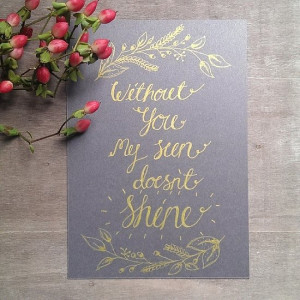 Without
You
My seen
doesn't
Shine